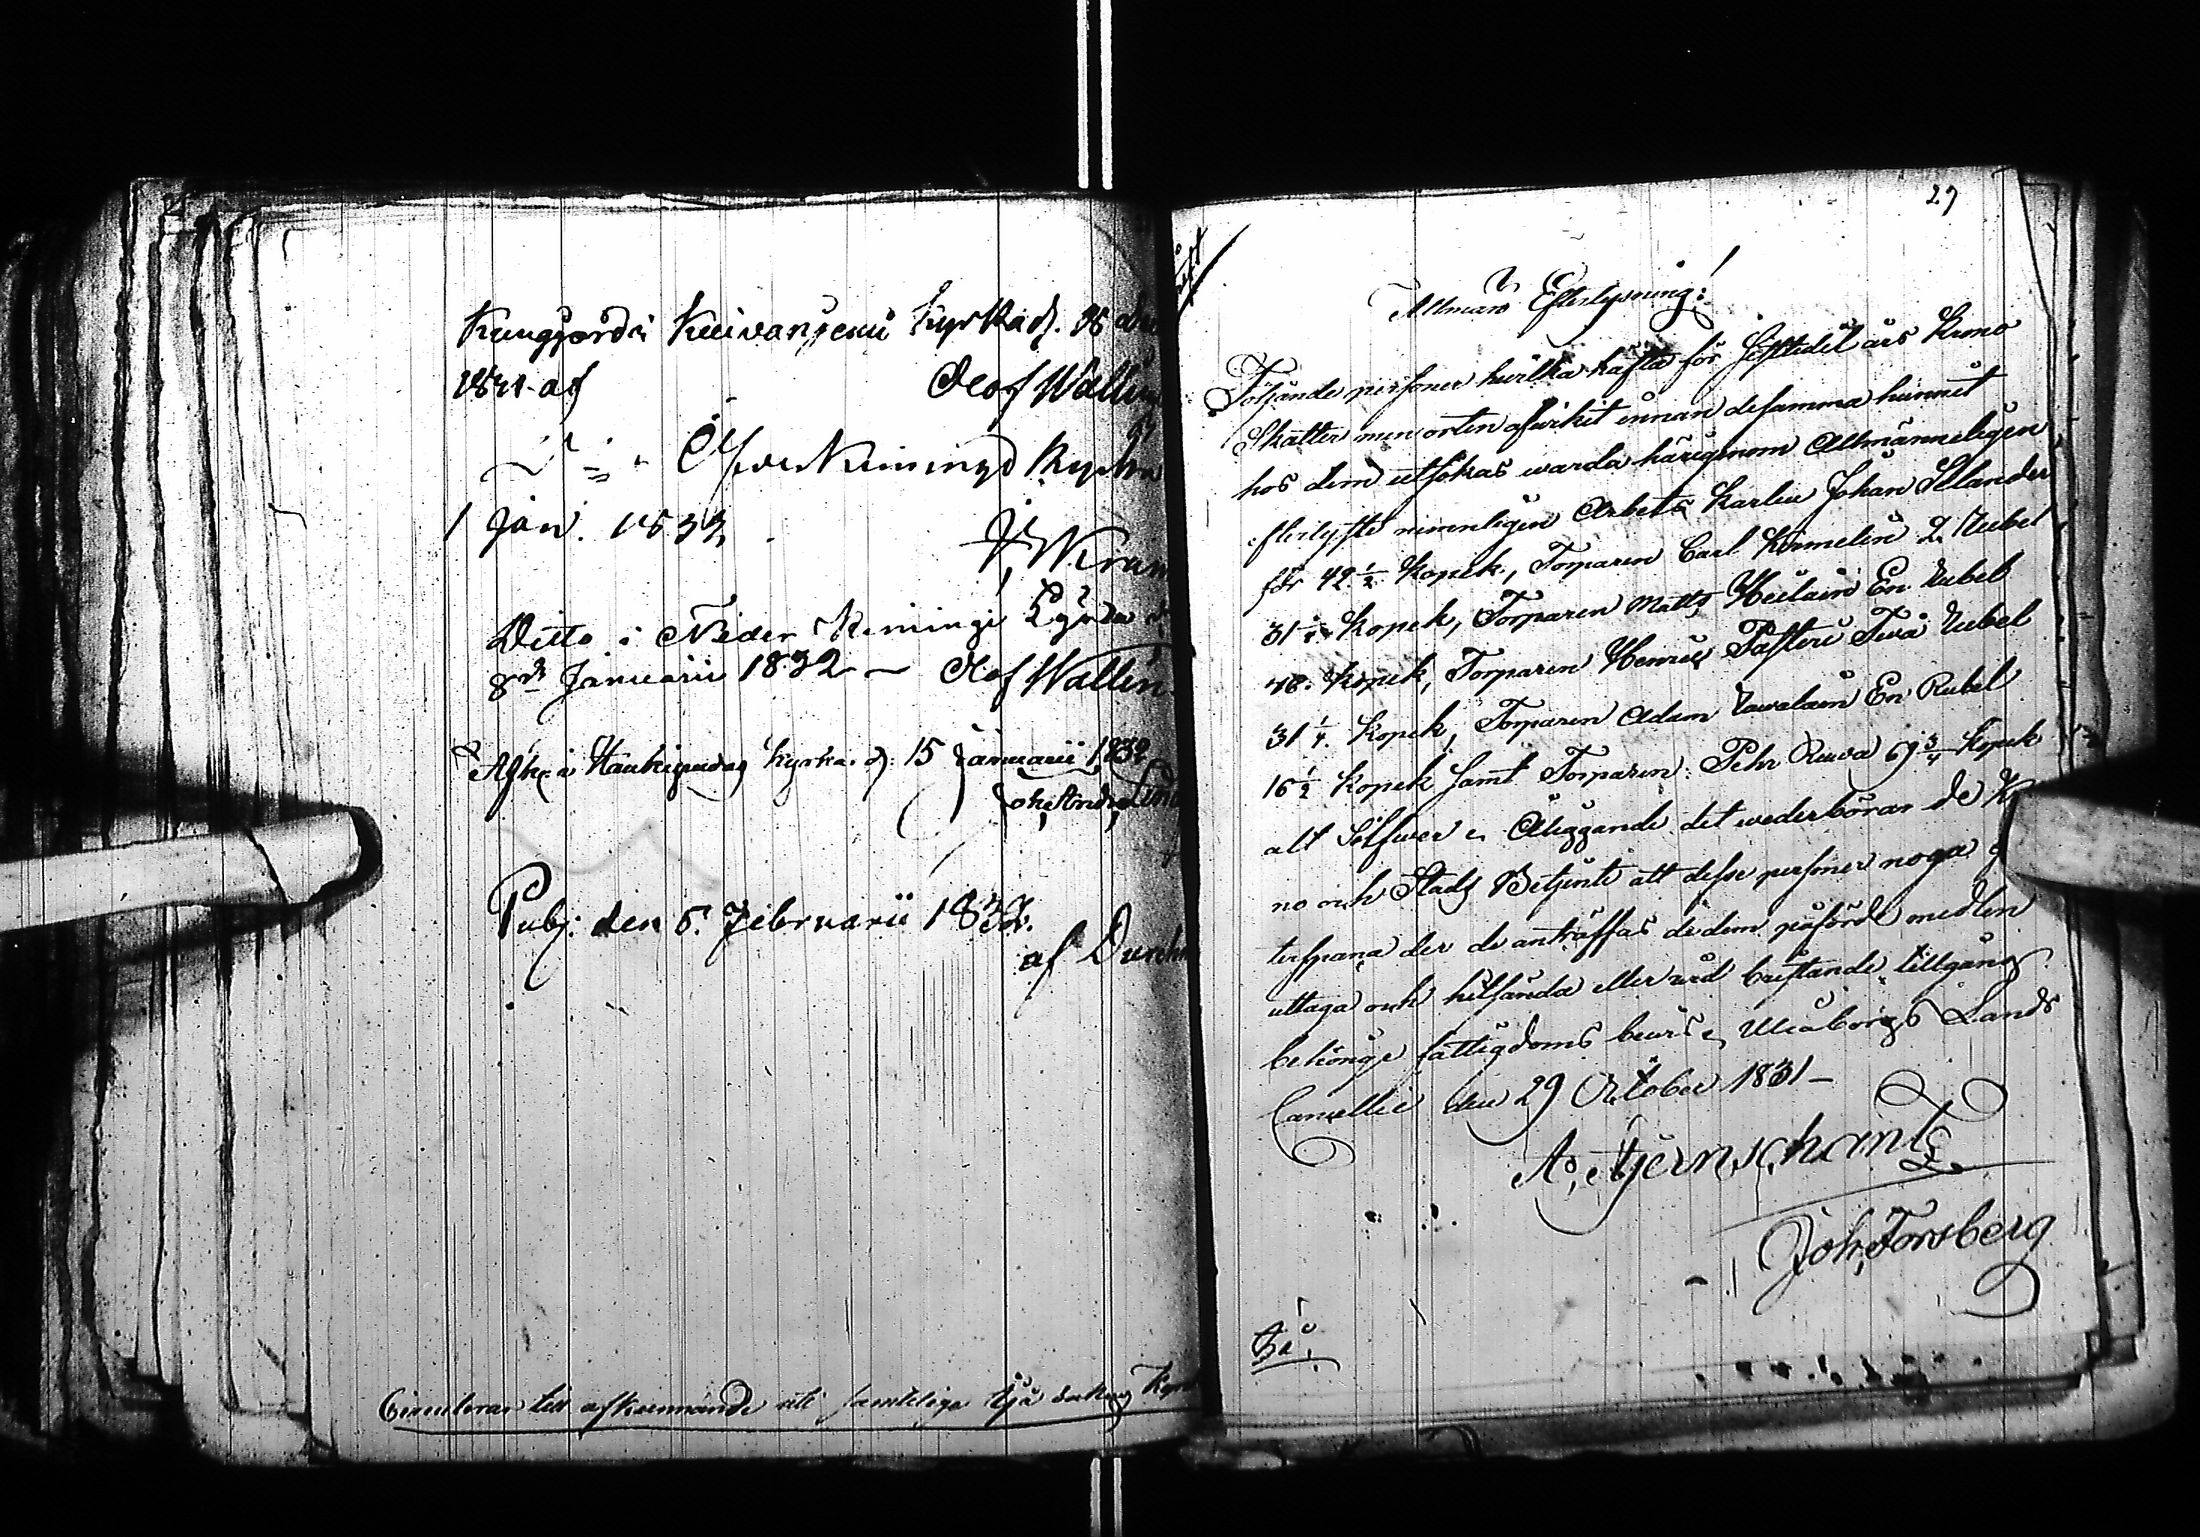 Kungjord i Kuivaniemi Kyrka d. 26
1831 af Olof Wallin
D:o i Öfver Kiminge Kyrka
1 Jan. 1832
Ditto i Neder Kiminge Kyrka d.
8de Januarii 1832 — Olof Wallin
Afk. i Haukipudas kyrka d. 15 Januarii 1832
Joh. Andr.
Publ: den 5. Februarii 1832.
af
Circulerar till afkunnande uti samtelige Kyrk
27
Allmän Efterlysning!
Följande personer hvilka häfta för sistledit års Krono
Skatter men orten afvikit innan desamma hunnit
hos dem utsökas warda härigenom Allmänneligen
efterlyste nemnligen Arbets Karlen Johan Selander
för 42 1/2 Kopek, Torparen Carl Kemelin 2 Rubel
31 1/4 Kopek, Torparen Matts En Rubel
48. Kopek, Torparen Henric Två Rubel
31 1/4. Kopek, Torparen Adam En Rubel
16 1/2 Kopek samt Torparen Pehr 69 3/4 Kopek
alt Silfwer; Åliggande det wederbörande K
no och Stads Betjente att desse personer noga
terspana der de anträffas de dem påförde medlen
uttaga och hitsända eller wid bristande tillgång
behörige fattigdoms bewis; Uleåborgs Lands
Cancellie den 29 October 1831 —
A. Stjernschantz
Joh. Forsberg